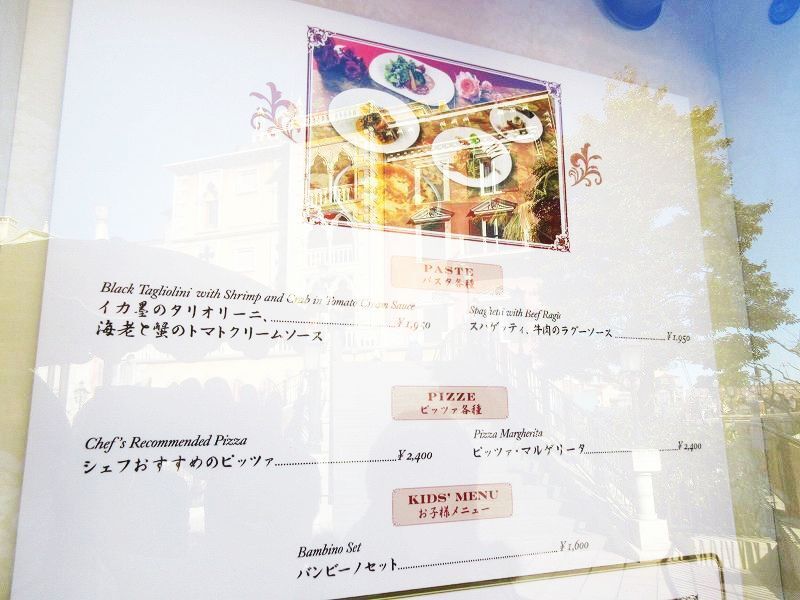 PASTE
パスタ各種
Black Tagliolini with Shrimp and Crab in Tomato Cream Sauce
イカ墨のタリオリーニ、
海老と蟹のトマトクリームソース
¥1,950
Spaghetti with Beef Ragù
スパゲッティ、牛肉のラグーソース ¥1,950
PIZZE
ピッツァ各種
Chef's Recommended Pizza
シェフおすすめのピッツァ ¥2,400
Pizza Margherita
ピッツァ・マルゲリータ ¥2,400
KIDS' MENU
お子様メニュー
Bambino Set
バンビーノセット ¥1,600